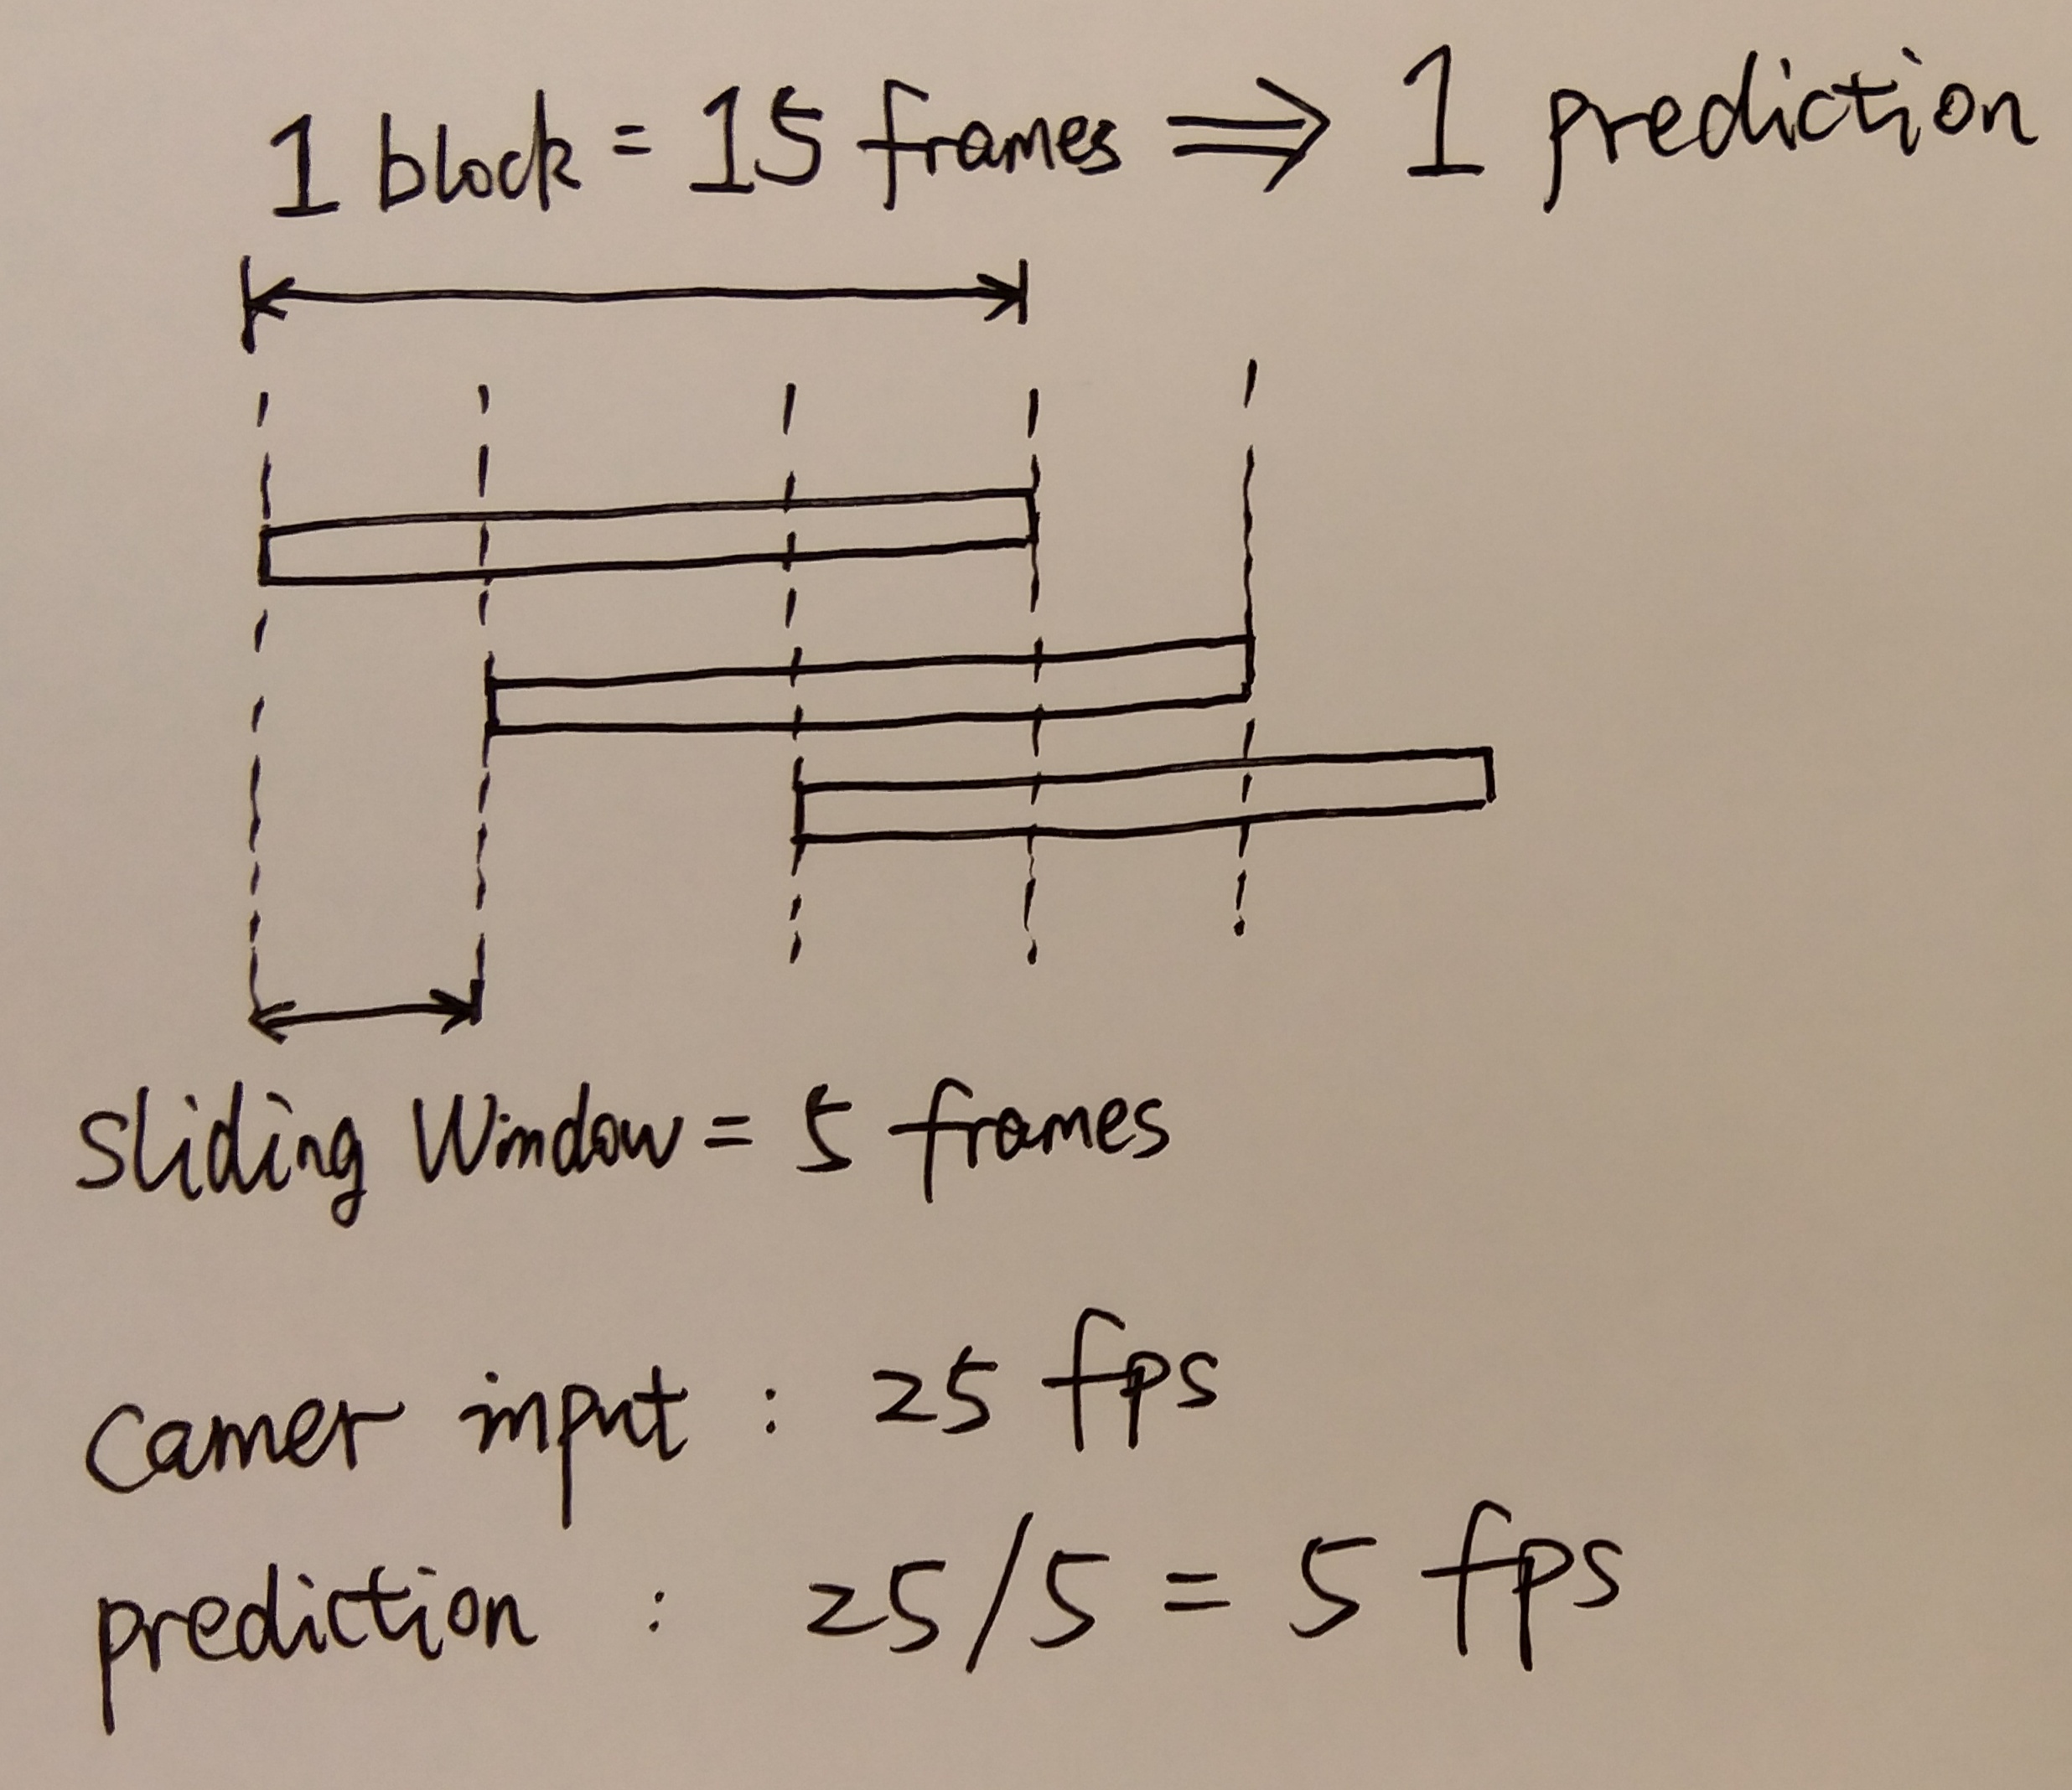 1 block = 15 frames ⇒ 1 prediction
sliding Window = 5 frames
camer input : 25 fps
prediction : 25/5 = 5 fps